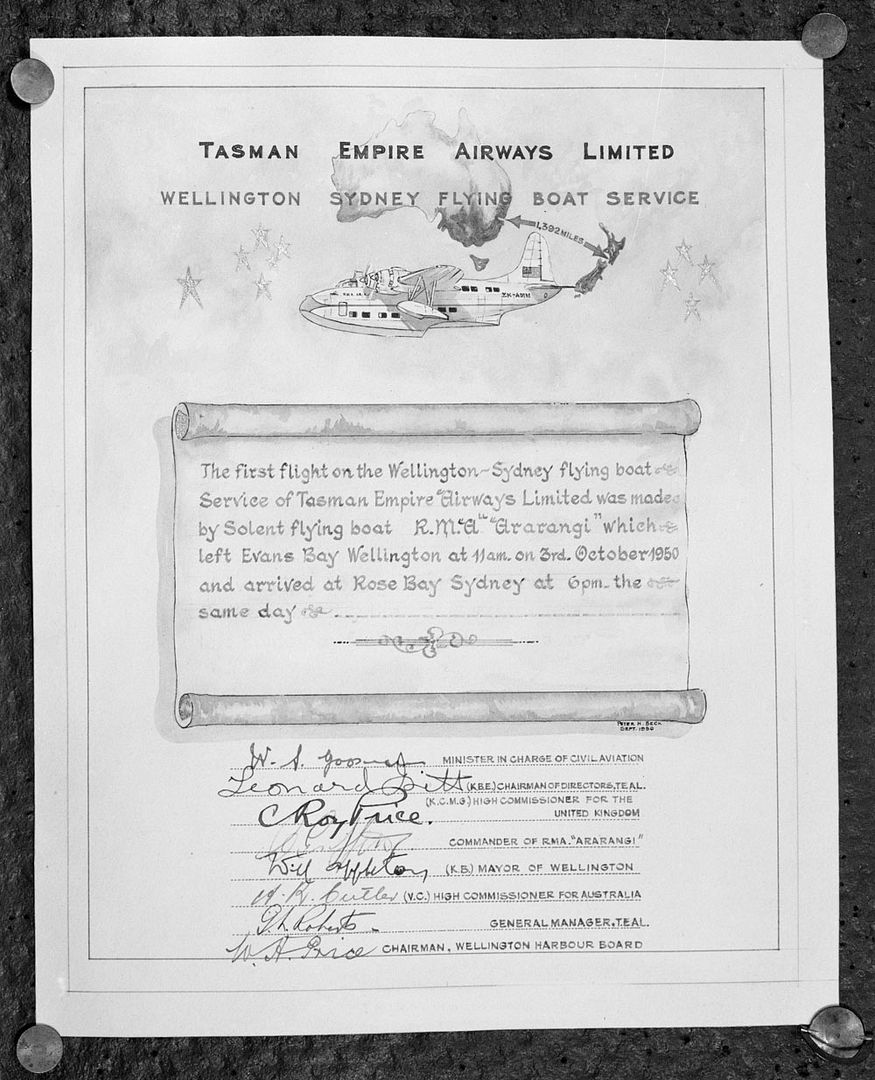 TASMAN EMPIRE AIRWAYS LIMITED
WELLINGTON SYDNEY FLYING BOAT SERVICE
1,392 MILES
ZK-AMM
The first flight on the Wellington-Sydney flying boat
Service of Tasman Empire Airways Limited was made
by Solent flying boat R.M.A "Ararangi" which
left Evans Bay Wellington at 11am. on 3rd. October 1950
and arrived at Rose Bay Sydney at 6pm. the
same day
PETER H. BECK
DEPT. 1950
W. S. Goosman MINISTER IN CHARGE OF CIVIL AVIATION
Leonard Isitt (K.B.E.) CHAIRMAN OF DIRECTORS, TEAL.
(K.C.M.G) HIGH COMMISSIONER FOR THE
C Roy Price. UNITED KINGDOM
COMMANDER OF RMA. "ARARANGI"
Will Appleton (K.B.) MAYOR OF WELLINGTON
A. R. Cutler (V.C.) HIGH COMMISSIONER FOR AUSTRALIA
Roberts GENERAL MANAGER, TEAL.
W. H. Price CHAIRMAN, WELLINGTON HARBOUR BOARD